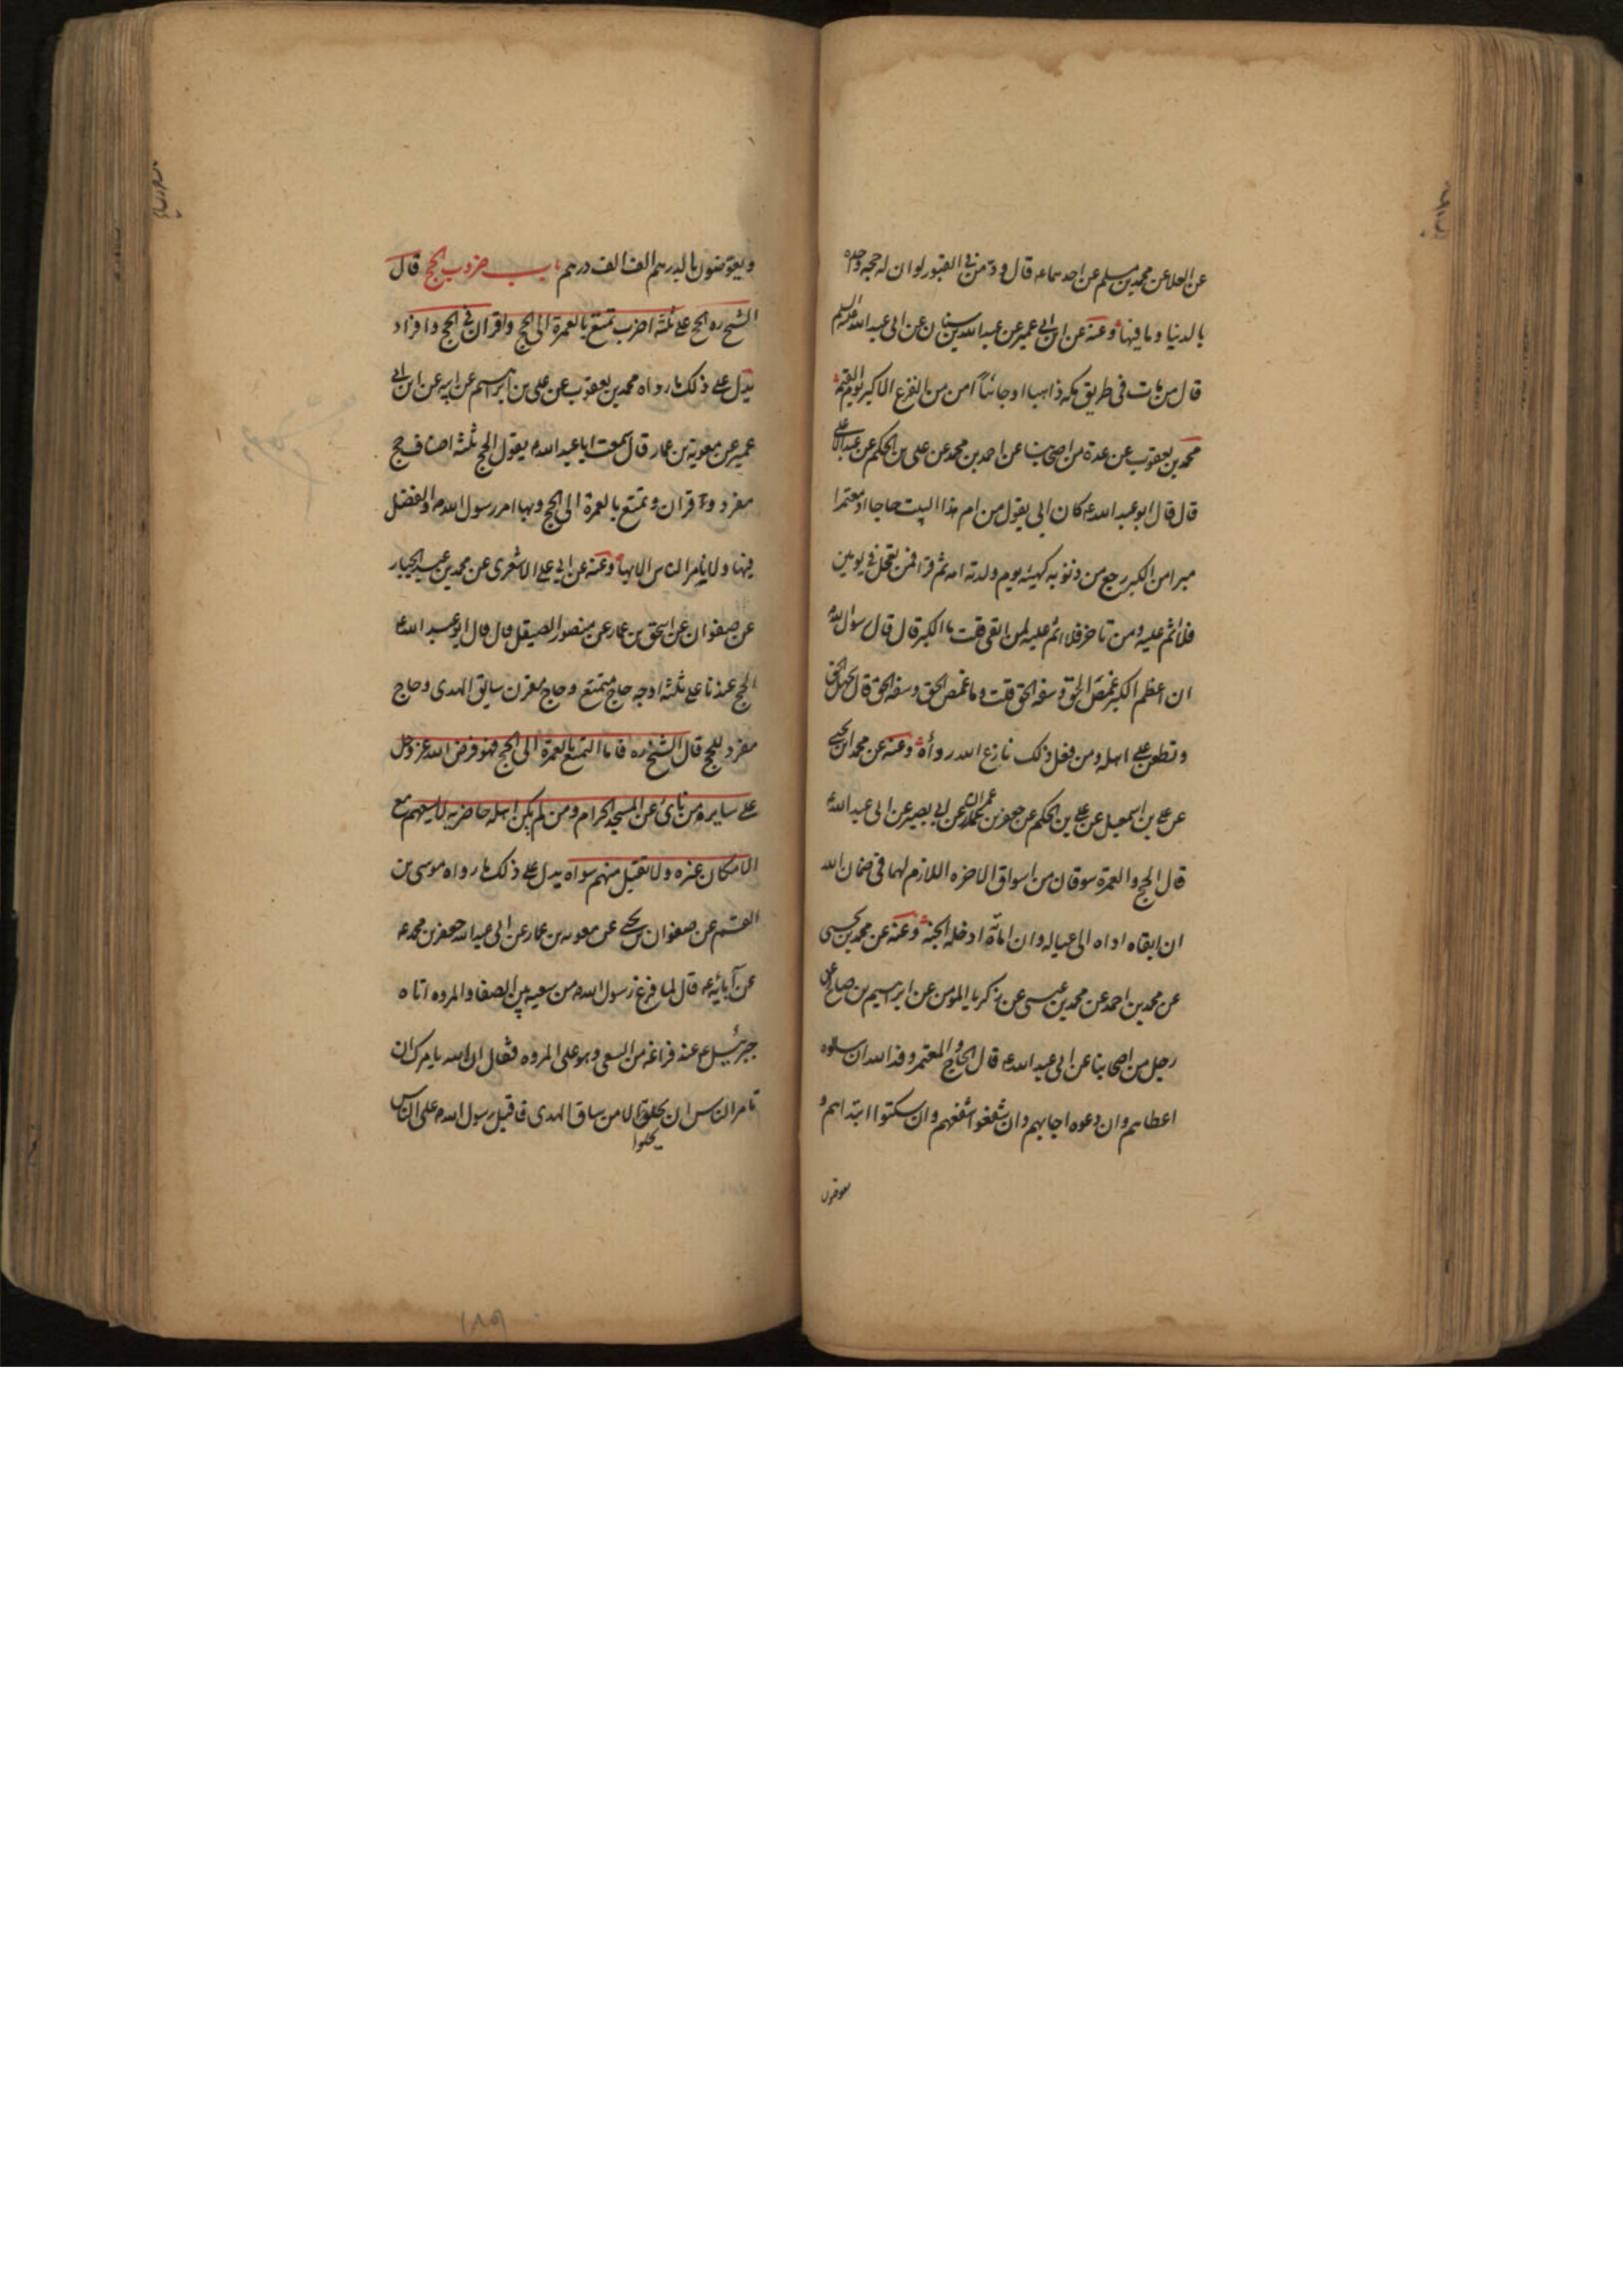 عن العلا عن محمد بن مسلم عن احدهما ع قال ودّ من فى القبور لو ان له حجة واحدة
بالدنيا وما فيها وعنه عن ابن ابى عمير عن عبد الله بن سنان عن ابى عبد الله عليه السلم
قال من مات فى طريق مكه ذاهبا او جائيا امن من الفزع الاكبر يوم القيمة
محمد بن يعقوب عن عدة من اصحابنا عن احمد بن محمد عن على بن الحكم عن عبد الاعلى
قال قال ابو عبد الله ع كان ابى يقول من ام هذا البيت حاجا او معتمرا
مبرا من الكبر رجع من ذنوبه كهيئة يوم ولدته امه ثم قرا فمن تعجل فى يومين
فلا اثم عليه ومن تاخر فلا اثم عليه لمن اتقى قلت ما الكبر قال قال رسول الله
ان اعظم الكبر غمص الحق وسفه الحق قلت وما غمص الحق وسفه الحق قال يجهل الحق
وتطعن على اهله ومن فعل ذلك نازع الله رداءه وعنه عن محمد بن يحيى
عن على بن اسمعيل عن على بن الحكم عن جعفر بن عمران عن ابى بصير عن ابى عبد الله ع
قال الحج والعمرة سوقان من اسواق الاخره اللازم لهما فى ضمان الله
ان ابقاه اداه الى عياله وان اماته ادخله الجنة وعنه عن محمد بن يحيى
عن محمد بن احمد عن محمد بن عيسى عن زكريا المومن عن ابرهيم بن صالح عن
رجل من اصحابنا عن ابى عبد الله ع قال الحاج والمعتمر وفد الله ان سالوه
اعطاهم وان دعوه اجابهم وان شفعوا شفعهم وان سكتوا ابتداهم و
يعوضون
ويعوّضون بالدرهم الف الف درهم باب ضروب الحج قال
الشيخ ره الحج على ثلثة اضرب تمتع بالعمرة الى الحج واقران فى الحج وافراد
يدل على ذلك ما رواه محمد بن يعقوب عن على بن ابرهيم عن ابيه عن ابن ابى
عمير عن معوية بن عمار قال سمعت ابا عبد الله ع يقول الحج ثلثة اصناف حج
مفرد وقران وتمتع بالعمرة الى الحج وبها امر رسول الله ص والفضل
فيها ولا يامر الناس الا بها وعنه عن ابى على الاشعرى عن محمد بن عبد الجبار
عن صفوان عن اسحق بن عمار عن منصور الصيقل قال قال ابو عبد الله ع
الحج عندنا على ثلثة اوجه حاج متمتع وحاج مقرن سايق الهدى وحاج
مفرد للحج قال الشيخ ره فاما التمتع بالعمرة الى الحج فهو فرض الله عز وجل
على ساير من ناى عن المسجد الحرام ومن لم يكن اهله حاضريه لا يسعهم مع
الامكان غيره ولا تقبل منهم سواه يدل على ذلك ما رواه موسى بن
القسم عن صفوان بن يحيى عن معويه بن عمار عن ابى عبد الله جعفر بن محمد ع
عن آبائه ع قال لما فرغ رسول الله ص من سعيه بين الصفا والمروه اتاه
جبرئيل ع عند فراغه من السعى وهو على المروه فقال ان الله يامرك ان
تامر الناس ان يحلوا الا من ساق الهدى فاقبل رسول الله ص على الناس
يحلوا
١٨٩